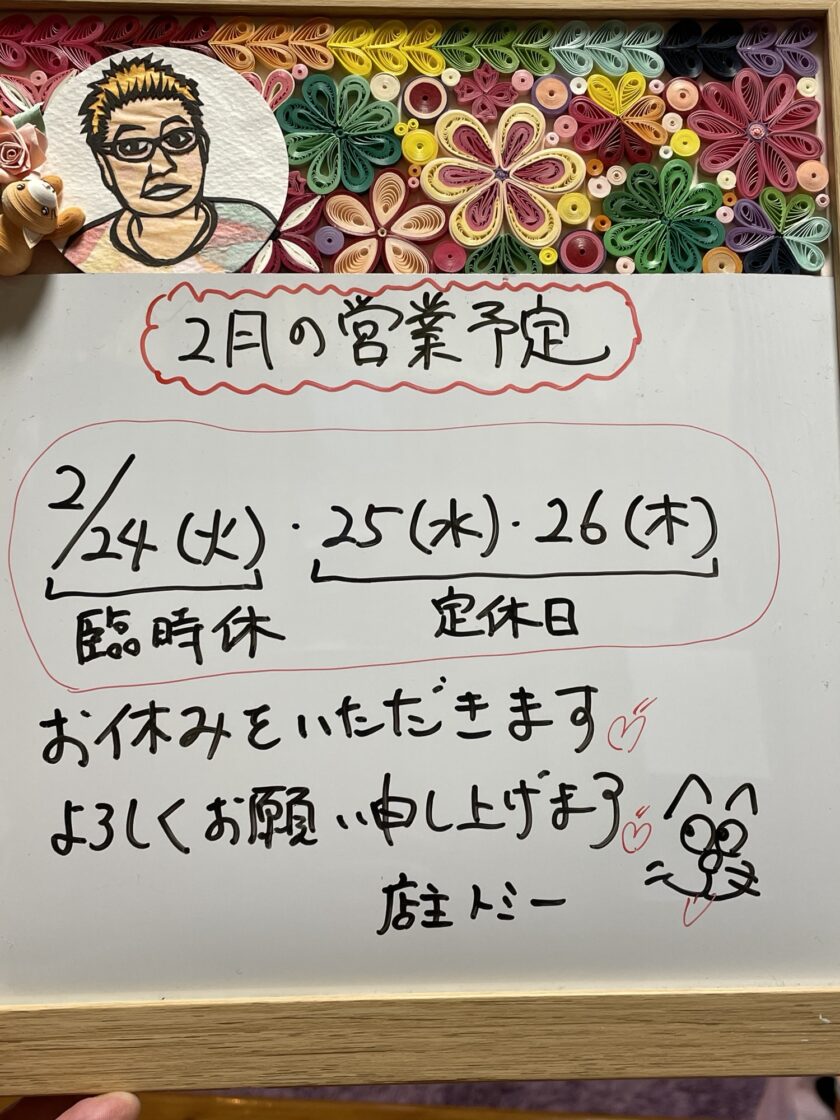 2月の営業予定
2/24(火)・25(水)・26(木)
臨時休 定休日
お休みをいただきます
よろしくお願い申し上げます
店主トミー